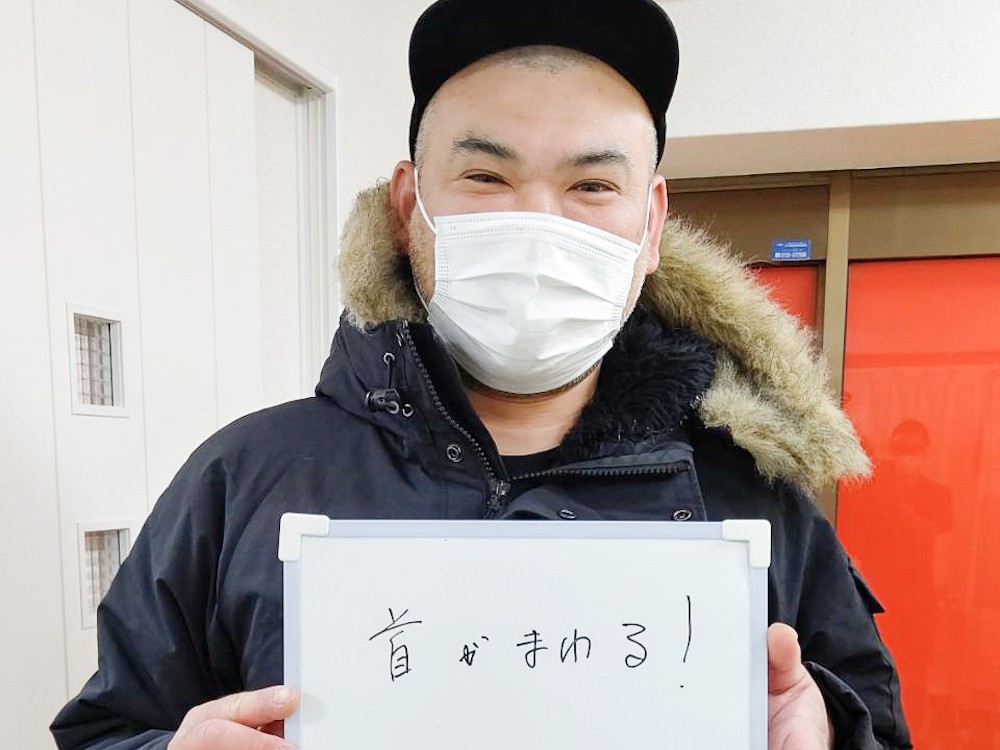 首がまわる!